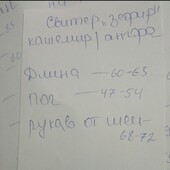 Свитер "Зефир"
кашемир/ангора
Длина — 60-63
ПОГ — 47-54
рукав от шеи —
68-72